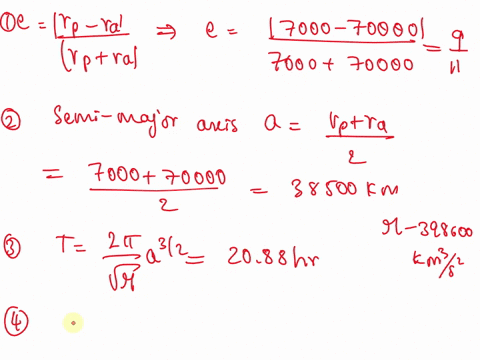 ① e = |rp - ra| / |rp + ra| ⇒ e = |7000 - 70000| / 7000 + 70000 = 9/11
② Semi-major axis a = rp + ra / 2
= 7000 + 70000 / 2 = 38500 km
③ T = 2π/√μ a^3/2 = 20.88 hr
μ - 398600 km³/s²
④